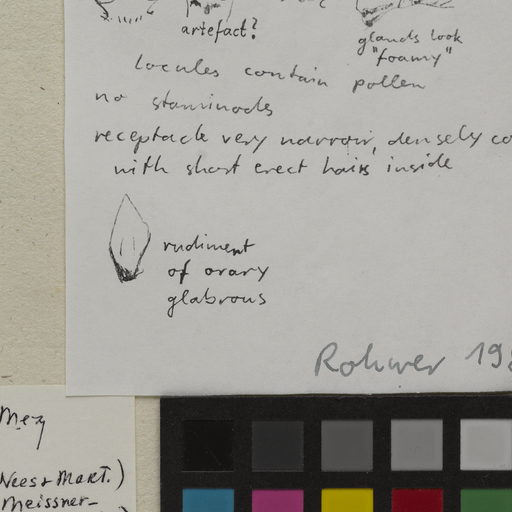 artefact?
glands look
"foamy"
locules contain pollen
no staminods
receptacle very narrow, densely co
with short erect hairs inside
rudiment
of ovary
glabrous
Rohwer 198
Mez
Nees & MART.)
Meissner-